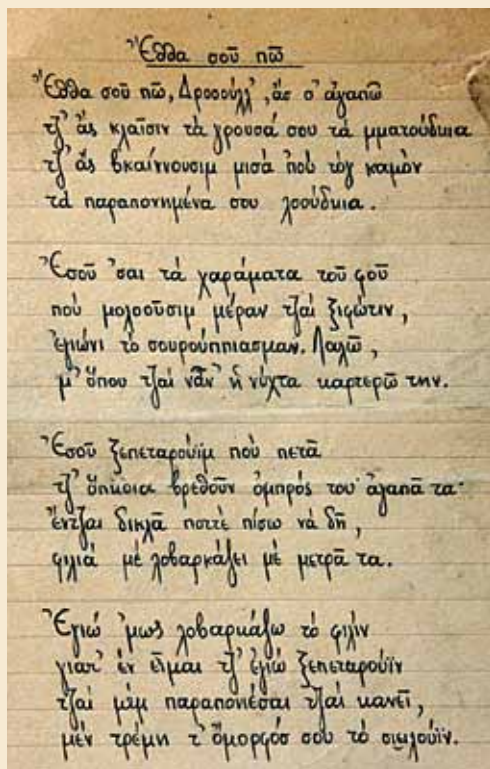 Ἔθθα σοῦ πῶ
Ἔθθα σοῦ πῶ, Δροσούλλ', ἄς σ' ἀγαπῶ
τζ' ἄς κλαῖσιν τὰ χρουσά σου τὰ μματούδκια
τζ' ἄς βκαίννουσιμ μισὰ 'ποὺ τὸγ καμὸν
τὰ παραπονημένα σου λοούδκια.

Ἐσοῦ 'σαι τὰ χαράματα τοῦ φοῦ
ποὺ μολοοῦσιμ μέραν τζαὶ ξιφώτιν,
ἐγιώνι τὸ σουρούππιασμαν. Λαλῶ,
μ' ὅπου τζαὶ νἆν' ἡ νύχτα καρτερῶ την.

Ἐσοῦ ξεπεταρούϊμ ποὺ πετᾶ
τζ' ὅπκοια βρεθοῦν ὀμπρός του· ἀγαπᾶ τα·
ἔντζαι δικλᾶ ποττὲ πίσω νὰ δῆ,
φιλιὰ μὲ λοβαρκάζει μὲ μετρᾶ τα.

Ἐγιώ 'μως λοβαρκάζω τὸ φιλὶν
γιατ' ἐν εἶμαι τζ' ἐγιὼ ξεπεταρούϊν
τζαὶ μὲμ παραπονιέσαι τζαὶ κανεῖ,
μὲν τρέμη τ' ὄμορφόσ σου τὸ σιωλούϊν.